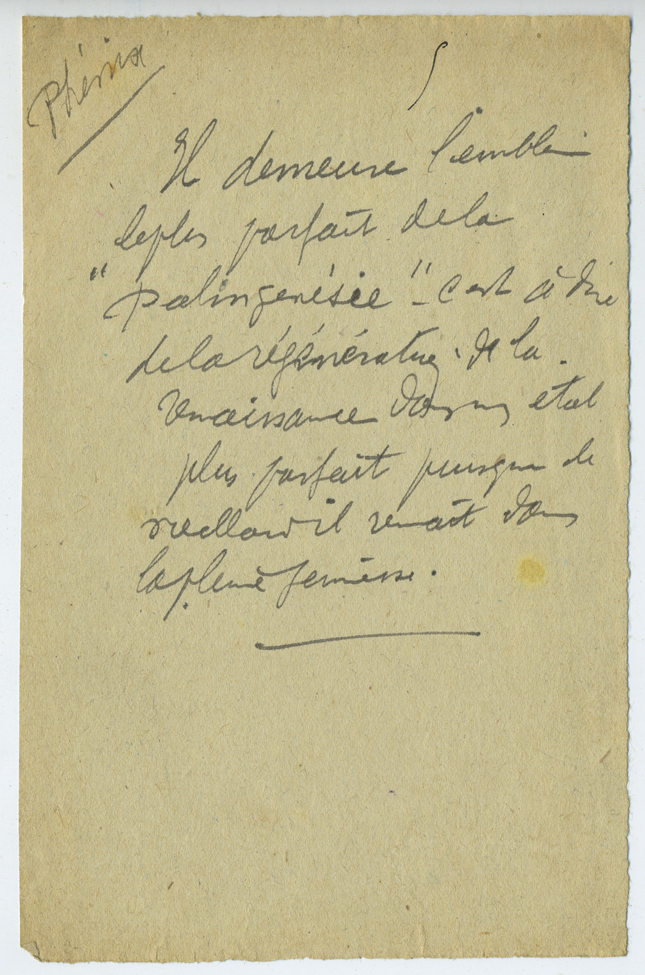 Phénix
5
Il demeure l'emblème
le plus parfait de la
"palingenésie" - c'est à dire
de la régénération, de la
renaissance dans un état
plus parfait puisque de
vieillard il renaît dans
la pleine jeunesse.